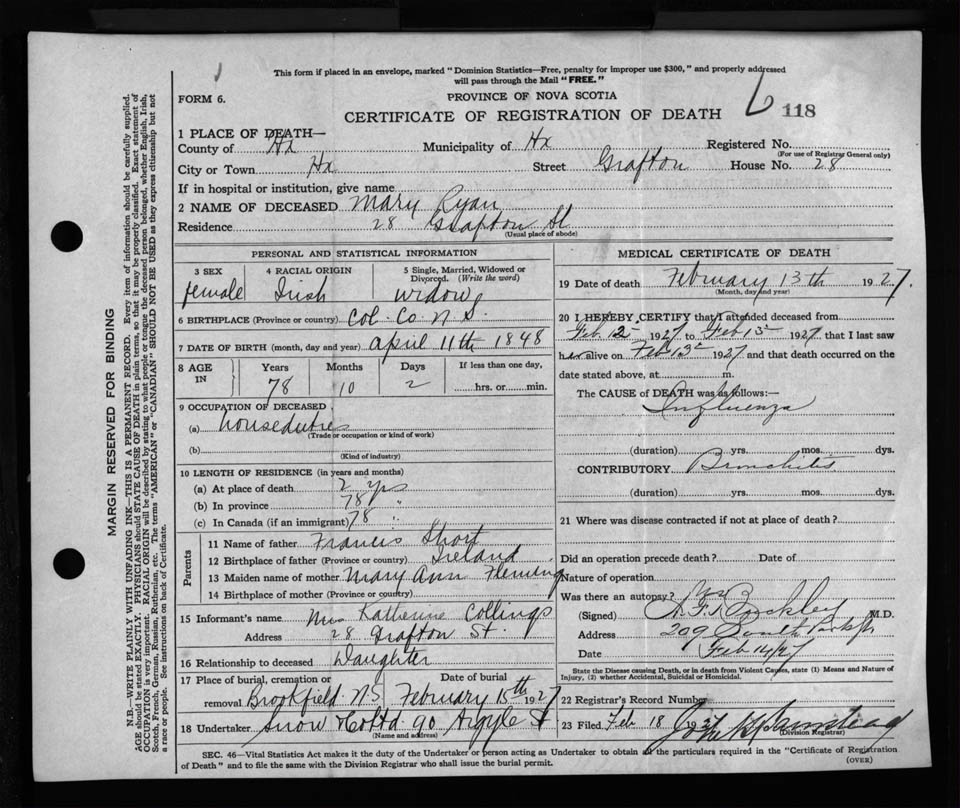 This form if placed in an envelope, marked "Dominion Statistics—Free, penalty for improper use $300," and properly addressed
will pass through the Mail "FREE."
FORM 6.
PROVINCE OF NOVA SCOTIA
CERTIFICATE OF REGISTRATION OF DEATH
118
1 PLACE OF DEATH—
County of Hx Municipality of Hx Registered No.
(For use of Registrar General only)
City or Town Hx Street Grafton House No. 28
If in hospital or institution, give name
2 NAME OF DECEASED Mary Ryan
Residence 28 Grafton St
(Usual place of abode)
PERSONAL AND STATISTICAL INFORMATION
3 SEX 4 RACIAL ORIGIN 5 Single, Married, Widowed or Divorced. (Write the word)
female Irish widow
6 BIRTHPLACE (Province or country) Col. Co. N S.
7 DATE OF BIRTH (month, day and year) april 11th 1848
8 AGE IN Years Months Days If less than one day,
78 10 2 hrs. or min.
9 OCCUPATION OF DECEASED
(a) houseduties
(Trade or occupation or kind of work)
(b)
(Kind of industry)
10 LENGTH OF RESIDENCE (in years and months)
(a) At place of death 2 yrs
(b) In province 78 "
(c) In Canada (if an immigrant) 78 "
Parents
11 Name of father Francis Short
12 Birthplace of father (Province or country) Ireland
13 Maiden name of mother Mary Ann Fleming
14 Birthplace of mother (Province or country)
15 Informant's name Mrs Katherine Collings
Address 28 Grafton St.
16 Relationship to deceased Daughter
17 Place of burial, cremation or removal Date of burial
Brookfield N S February 15th 1927
18 Undertaker Snow & Co Ltd 90 Argyle St
(Name and address)
MEDICAL CERTIFICATE OF DEATH
19 Date of death February 13th 1927.
(Month, day and year)
20 I HEREBY CERTIFY that I attended deceased from
Feb 12 1927 to Feb 13 1927 that I last saw
her alive on Feb 13 1927 and that death occurred on the
date stated above, at m.
The CAUSE of DEATH was as follows:—
Influenza
(duration) yrs. mos. dys.
CONTRIBUTORY Bronchitis
(duration) yrs. mos. dys.
21 Where was disease contracted if not at place of death?
Did an operation precede death? Date of
Nature of operation
Was there an autopsy? No
(Signed) M.D.
Address 209 South Park St
Date Feb 14/27
State the Disease causing Death, or in death from Violent Causes, state (1) Means and Nature of
Injury, (2) whether Accidental, Suicidal or Homicidal.
22 Registrar's Record Number
23 Filed Feb 18 1927
(Division Registrar)
SEC. 46—Vital Statistics Act makes it the duty of the Undertaker or person acting as Undertaker to obtain all the particulars required in the "Certificate of Registration
of Death" and to file the same with the Division Registrar who shall issue the burial permit.
(OVER)
MARGIN RESERVED FOR BINDING
N.B.—WRITE PLAINLY WITH UNFADING INK—THIS IS A PERMANENT RECORD. Every item of information should be carefully supplied.
AGE should be stated EXACTLY. PHYSICIANS should STATE CAUSE OF DEATH in plain terms, so that it may be properly classified. Exact statement of
OCCUPATION is very important. RACIAL ORIGIN will be described by stating to what people or tongue the deceased person belonged, whether English, Irish,
Scotch, French, German, Russian, Ruthenian, etc. The terms "AMERICAN" or "CANADIAN" SHOULD NOT BE USED as they express citizenship but not
a race or people. See instructions on back of Certificate.